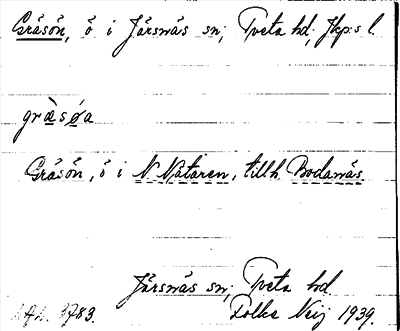 Gräsön, ö i Järsnäs sn; Tveta hd; Jkp:s l.
græsøa
Gräsön, ö i N. Nätaren, tillh. Bodanäs.
Järsnäs sn; Tveta hd.
3783. Folke Nij 1939.